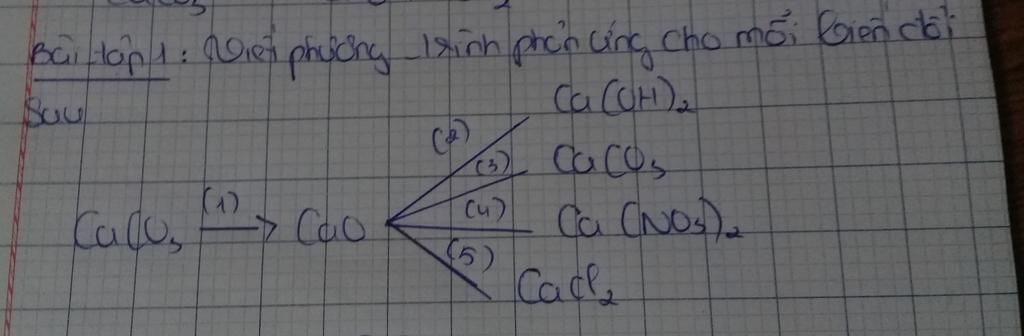 Bài tập 1: Viết phương trình phản ứng cho mỗi biến đổi
sau
Ca(OH)₂
(2)
(3) CaCO₃
CaCO₃ (1) → CaO (4) Ca(NO₃)₂
(5) CaCl₂